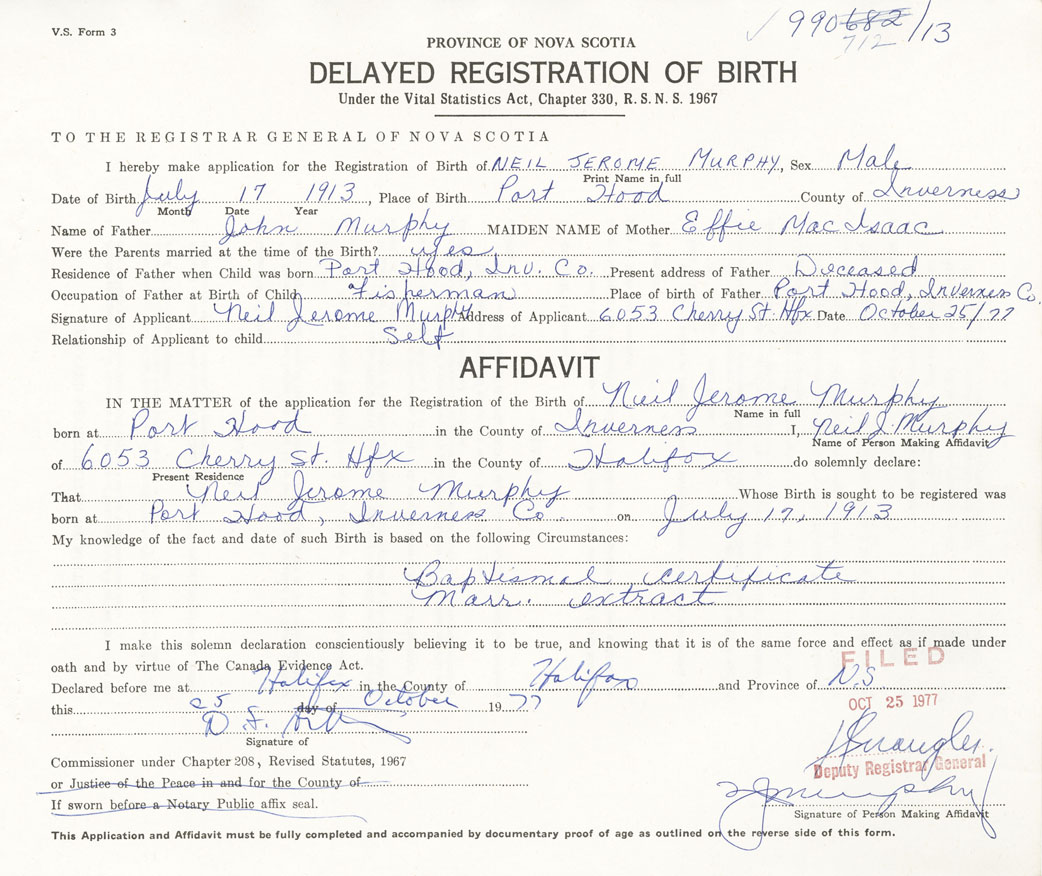 V.S. Form 3
990682/13
712
PROVINCE OF NOVA SCOTIA
DELAYED REGISTRATION OF BIRTH
Under the Vital Statistics Act, Chapter 330, R.S.N.S. 1967
TO THE REGISTRAR GENERAL OF NOVA SCOTIA
I hereby make application for the Registration of Birth of NEIL JEROME MURPHY, Sex Male
Print Name in full
Date of Birth July 17 1913, Place of Birth Port Hood County of Inverness
Month Date Year
Name of Father John Murphy MAIDEN NAME of Mother Effie MacIsaac
Were the Parents married at the time of the Birth? yes
Residence of Father when Child was born Port Hood, Inv. Co. Present address of Father Deceased
Occupation of Father at Birth of Child Fisherman Place of birth of Father Port Hood, Inverness Co.
Signature of Applicant Neil Jerome Murphy Address of Applicant 6053 Cherry St. Hfx Date October 25/77
Relationship of Applicant to child Self
AFFIDAVIT
IN THE MATTER of the application for the Registration of the Birth of Neil Jerome Murphy
Name in full
born at Port Hood in the County of Inverness I, Neil J. Murphy
Name of Person Making Affidavit
of 6053 Cherry St. Hfx in the County of Halifax do solemnly declare:
Present Residence
That Neil Jerome Murphy Whose Birth is sought to be registered was
born at Port Hood, Inverness Co. on July 17, 1913
My knowledge of the fact and date of such Birth is based on the following Circumstances:
Baptismal certificate
Marr. extract
I make this solemn declaration conscientiously believing it to be true, and knowing that it is of the same force and effect as if made under
oath and by virtue of The Canada Evidence Act.
FILED
Declared before me at Halifax in the County of Halifax and Province of N.S
this 25 day of October 1977
OCT 25 1977
Signature of
Commissioner under Chapter 208, Revised Statutes, 1967
Deputy Registrar General
or Justice of the Peace in and for the County of
Murphy
If sworn before a Notary Public affix seal.
Signature of Person Making Affidavit
This Application and Affidavit must be fully completed and accompanied by documentary proof of age as outlined on the reverse side of this form.